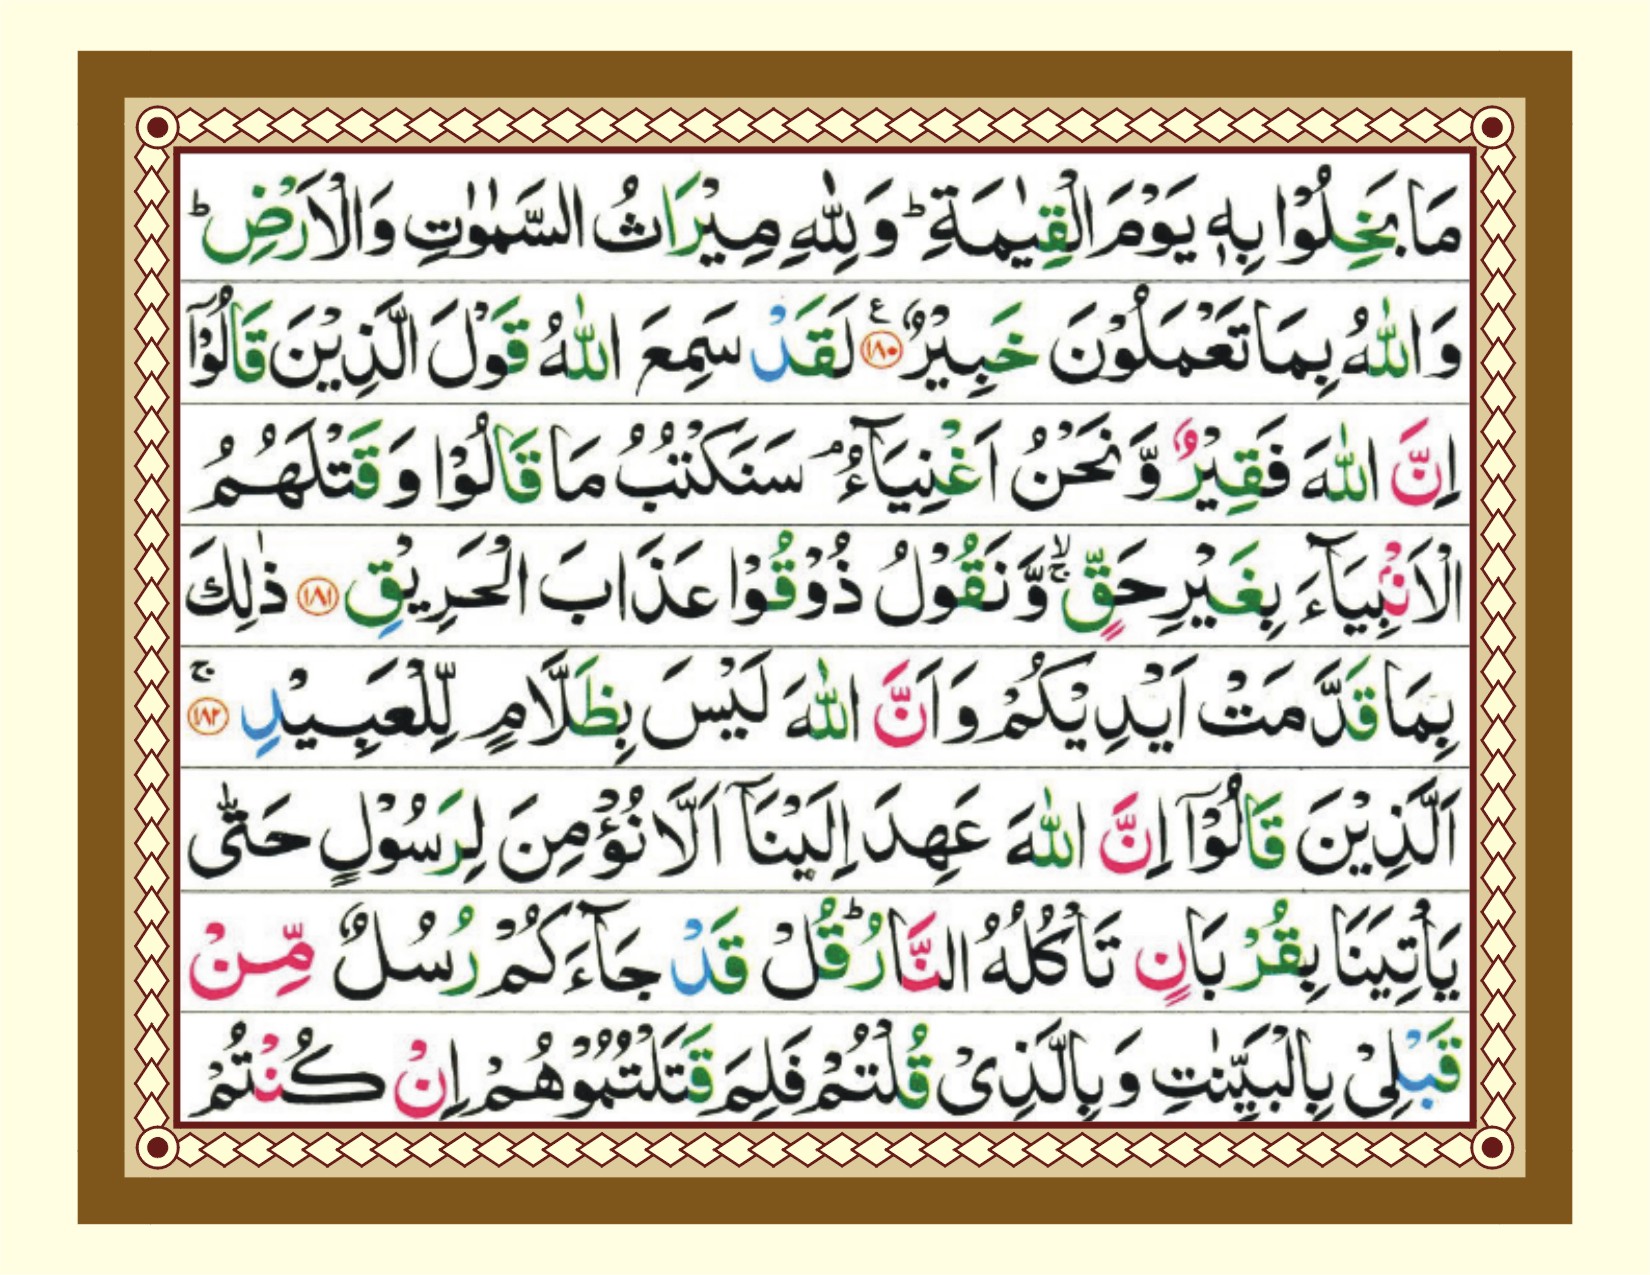 مَا بَخِلُوْا بِهٖ يَوْمَ الْقِيٰمَةِ ؕ وَلِلّٰهِ مِيْرَاثُ السَّمٰوٰتِ وَالْاَرْضِ ؕ
وَاللّٰهُ بِمَا تَعْمَلُوْنَ خَبِيْرٌ ﴿۱۸۰﴾ ع لَقَدْ سَمِعَ اللّٰهُ قَوْلَ الَّذِيْنَ قَالُوْۤا
اِنَّ اللّٰهَ فَقِيْرٌ وَّنَحْنُ اَغْنِيَآءُ ۘ سَنَكْتُبُ مَا قَالُوْا وَقَتْلَهُمُ
الْاَنْۢبِيَآءَ بِغَيْرِ حَقٍّ ۙۚ وَّنَقُوْلُ ذُوْقُوْا عَذَابَ الْحَرِيْقِ ﴿۱۸۱﴾ ذٰلِكَ
بِمَا قَدَّمَتْ اَيْدِيْكُمْ وَاَنَّ اللّٰهَ لَيْسَ بِظَلَّامٍ لِّلْعَبِيْدِ ﴿۱۸۲﴾ ۚ
اَلَّذِيْنَ قَالُوْۤا اِنَّ اللّٰهَ عَهِدَ اِلَيْنَاۤ اَلَّا نُؤْمِنَ لِرَسُوْلٍ حَتّٰى
يَاْتِيَنَا بِقُرْبَانٍ تَاْكُلُهُ النَّارُ ؕ قُلْ قَدْ جَآءَكُمْ رُسُلٌ مِّنْ
قَبْلِىْ بِالْبَيِّنٰتِ وَبِالَّذِىْ قُلْتُمْ فَلِمَ قَتَلْتُمُوْهُمْ اِنْ كُنْتُمْ